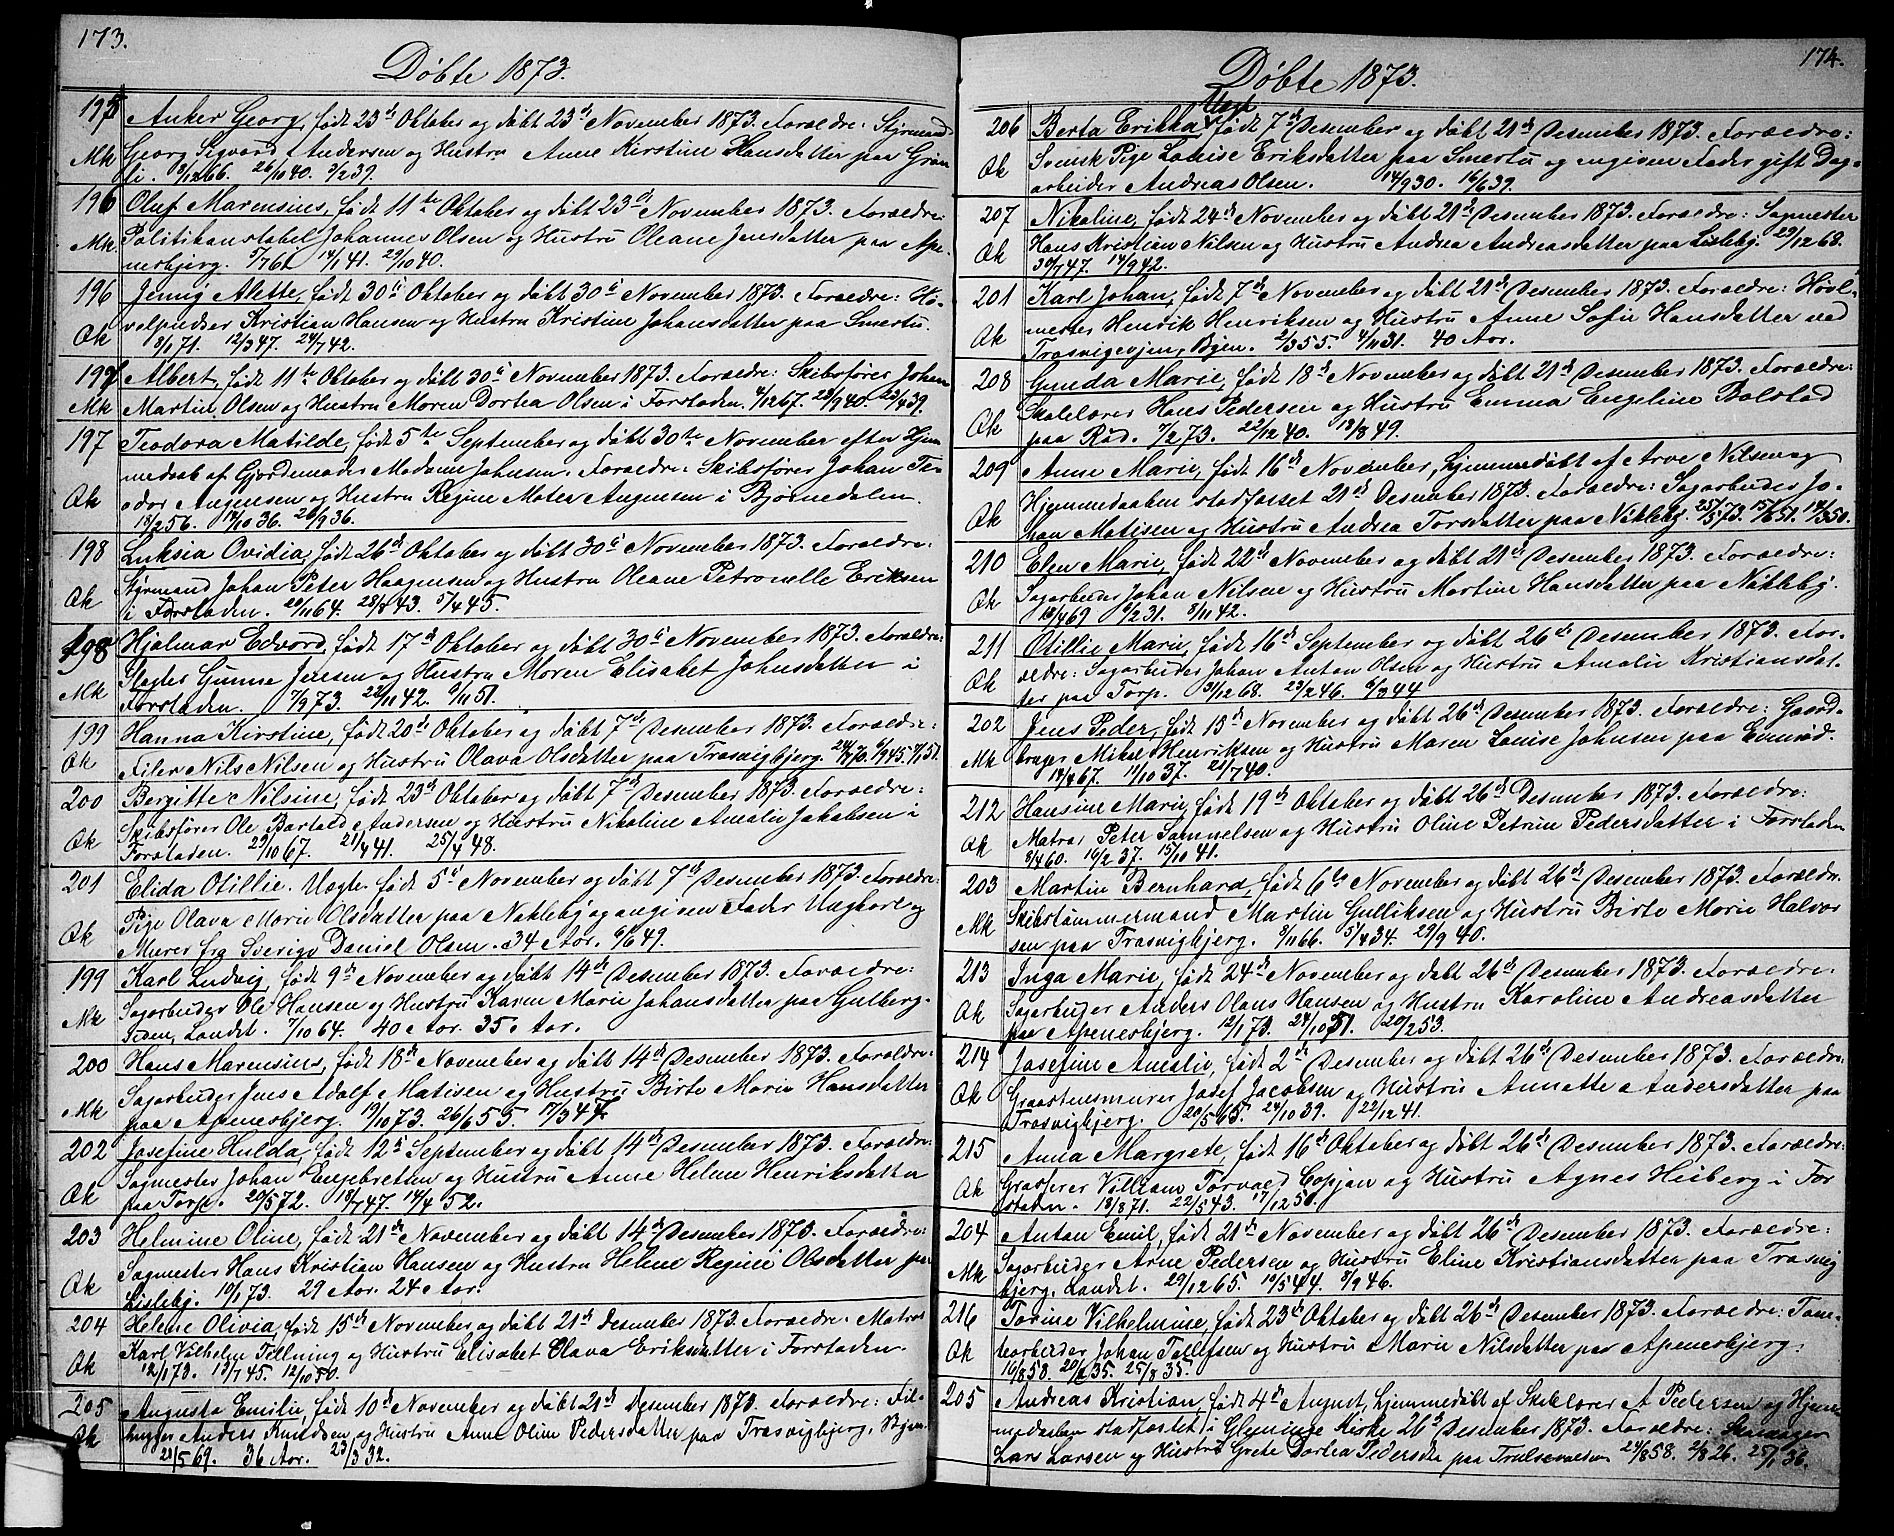 173.
Döbte 1873.
195 Anker Georg, født 23de Oktober og døbt 23de November 1873. Foræeldre: Styrmand
Mk Georg Sigvard Andersen og Hustru Anne Kirstine Hansdatter paa Grøn
li. 8/12 66. 26/10 40. 9/2 39.
196 Oluf Marensius, født 11te Oktober og døbt 23de November 1873. Foræeldre:
Mk. Politikonstabel Johannes Olsen og Hustru Oleane Jensdatter paa Ape-
nesbjerg. 14/1 41. 29/10 40.
196 Jenny Alette, født 30te Oktober og døbt 30te November 1873. Foræeldre: Hø-
Qk velpudser Kristian Hansen og Hustru Kristine Johansdatter paa Smertu.
8/1 71. 12/3 47. 24/7 42.
197 Albert, født 11te Oktober og døbt 30te November 1873. Foræeldre: Skibsfører Johan
Mk Martin Olsen og Hustru Maren Dortea Olsen i Forstaden. 4/12 67. 28/9 40. 23/4 39.
197 Teodora Matilde, født 5te September og døbt 30te November efter Hjem
medaab af Gjordemoder Madame Johnsen. Foræeldre: Skibsfører Johan Te-
Qk odor Augensen og Hustru Regine Mater Augensen i Bjørnedalen.
18/2 56. 14/10 36. 26/9 36.
198 Luksia Ovidia, født 26de Oktober og døbt 30te November 1873. Foræeldre:
Styrmand Johan Peter Haagensen og Hustru Oleane Petronelle Eriksen
Qk i Forstaden. 29/11 64. 28/8 43. 5/4 45.
198 Hjalmar Edvard, født 17de Oktober og døbt 30te November 1873. Foræeldre:
Slagter Gunne Jensen og Hustru Maren Elisabet Johnsdatter i
Mk Forstaden. 7/9 73. 28/11 42. 9/11 51.
199 Hanna Kirstine, født 20de Oktober og døbt 7de Desember 1873. Foræeldre:
Qk Filer Nils Nilsen og Hustru Olava Olsdatter paa Trosvigbjerg.
200 Bergitte Nilsine, født 23de Oktober og døbt 7de Desember 1873. Foræeldre:
Skibsfører Ole Bartold Andersen og Hustru Nikoline Amalie Jakobsen i
Qk Forstaden. 29/10 67. 21/4 41. 25/4 48.
201 Elida Otillie. Uægte. født 5te November og døbt 7de Desember 1873. Foræeldre:
Pige Olava Marie Olsdatter paa Nøkleby og angiven Fader Ungkarl og
Qk Murer fra Sverige Daniel Olsen. 34 Aar. 6/6 49.
199 Karl Ludvig, født 9de November og døbt 14de Desember 1873. Foræeldre:
Mk Sagarbeider Ole Hansen og Hustru Karen Marie Johansdatter paa Gulberg-
siden, Landet. 7/10 64. 40 Aar. 35 Aar.
200 Hans Marensius, født 18de November og døbt 14de Desember 1873. Foræeldre:
Sagarbeider Jens Adolf Matisen og Hustru Birte Marie Hansdatter
Mk paa Apenesbjerg. 19/10 73. 26/6 53. 17/3 47.
202 Josefine Hulda, født 12te September og døbt 14de Desember 1873. Foræeldre:
Sagmester Johan Engebretsen og Hustru Anne Helene Henriksdatter
Qk paa Torp. 20/5 72. 18/7 47. 14/4 52.
203 Helmine Oline, født 21de November og døbt 14de Desember 1873. Foræeldre:
Sagmester Hans Kristian Hansen og Hustru Helene Regine Olsdatter paa
Qk Lisleby. 19/1 73. 29 Aar. 24 Aar.
204 Helene Olivia, født 15de November og døbt 21de Desember 1873. Foræeldre: Matros
Karl Vilhelm Tellning og Hustru Elisabet Olava Eriksdatter i Forstaden.
Qk 12/1 73. 13/7 45. 12/10 50.
205 Augusta Emilie, født 10de November og døbt 21de Desember 1873. Foræeldre: Fil-
Qk hugger Anders Knudsen og Hustru Anne Oline Pedersdatter paa Trosvigbjerg, Byen.
28/5 69. 36 Aar. 23/3 32.
174.
Döbte 1873.
206 Berta Erikka, Uægt født 7de Desember og døbt 21de Desember 1873. Foræeldre:
Svensk Pige Louise Eriksdatter paa Smertu og angiven Fader gift Dag-
Qk arbeider Andreas Olsen. 14/9 30. 16/6 39.
207 Nikoline, født 24de November og døbt 21de Desember 1873. Foræeldre: Sagmester
Qk Hans Kristian Nilsen og Hustru Andrea Andreasdatter paa Lisleby. 29/12 68.
30/7 47. 14/9 42.
201 Karl Johan, født 7de November og døbt 21de Desember 1873. Foræeldre: Høvl-
Qk mester Henrik Henriksen og Hustru Anne Sofie Hansdatter ved
Trosvigevjen, Byen. 2/3 55. 4/11 31. 40 Aar.
208 Gunda Marie, født 18de November og døbt 21de Desember 1873. Foræeldre:
Skolelærer Hans Pedersen og Hustru Emma Engeline Bolstad
Qk paa Rød. 7/2 73. 22/12 40. 18/8 49.
209 Anne Marie, født 16de November, hjemmedøbt af Arve Nilsen og
Hjemmedaaben stadfæstet 21de Desember 1873. Foræeldre: Sagarbeider Jo-
Qk han Matisen og Hustru Andrea Torsdatter paa Nøkleby. 25/5 73.
210 Elen Marie, født 22de November og døbt 21de Desember 1873. Foræeldre:
Sagarbeider Johan Nilsen og Hustru Martine Hansdatter paa Nøkleby.
Qk 18/4 69. 9/2 31. 8/11 42.
211 Otillie Marie, født 16de September og døbt 26de Desember 1873. For-
Qk ældre: Sagarbeider Johan Anton Olsen og Hustru Amalie Kristiansdat-
ter paa Torp. 31/12 68. 23/2 46. 6/3 44
202 Jens Peder, født 15de November og døbt 26de Desember 1873. Foræeldre: Gaard-
Mk bruger Mikal Henriksen og Hustru Maren Louise Johnsen paa Evenrød.
14/4 67. 11/10 37. 21/7 40.
212 Hansine Marie, født 19de Oktober og døbt 26de Desember 1873. Foræeldre:
Qk Matros Peter Samuelsen og Hustru Oline Petrine Pedersdatter i Forstaden
8/4 60. 16/2 37. 15/10 41.
203 Martin Bernhard, født 6te November og døbt 26de Desember 1873. Foræeldre.
Mk Skibstømmermand Martin Gulliksen og Hustru Birte Marie Halvor
sen paa Trosvigbjerg. 8/11 66. 5/4 34. 29/9 40.
213 Inga Marie, født 24de November og døbt 26de Desember 1873. Foræeldre:
Qk Sagarbeider Anders Olaus Hansen og Hustru Karoline Andreasdatter
paa Apenesbjerg. 12/1 73. 24/10 51. 20/2 53.
214 Josefine Amalie, født 2de Desember og døbt 26de Desember 1873. Foræeldre:
Qk Graastensmurer Josef Jacobsen og Hustru Annette Andersdatter paa
Trosvigbjerg. 20/5 65. 24/10 39. 22/12 41.
215 Anna Margrete, født 16de Oktober og døbt 26de Desember 1873. Foræeldre:
Qk Grosserer Villiam Torvald Copjan og Hustru Agnes Heiberg i For
staden. 18/8 71. 22/5 43. 17/12 50.
204 Anton Emil, født 21de November og døbt 26de Desember 1873. Foræeldre:
Sagarbeider Arne Pedersen og Hustru Eline Kristiansdatter paa Trosvig
Mk bjerg, Landet. 29/12 65. 19/5 44. 9/9 46.
216 Torine Vilhelmine, født 23de Oktober og døbt 26de Desember 1873. Foræeldre: Tom-
Qk tearbeider Johan Tellefsen og Hustru Marie Nilsdatter paa Apenesbjerg:
16/8 58. 20/6 35. 25/8 35.
205 Andreas Kristian, født 4de August, hjemmedøbt af Skolelærer A Pedersen og Hjem
medaaben stadfæstet i Glemminge Kirke 26de Desember 1873. Foræeldre:
Lars Larsen og Hustru Grete Dortea Pedersdtr paa 24/8 58. 2/8 26. 25/1 36.